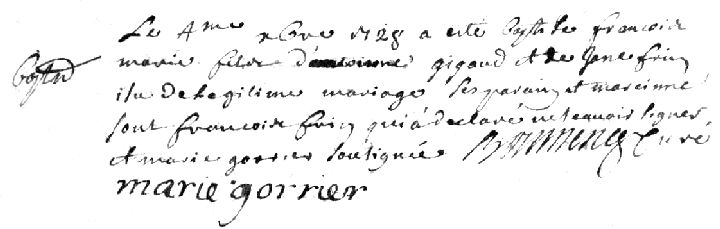 Le 4me xbre 1728 a esté baptisé francois
marie fils d' gigaud et de Jane frin
isu de legitime mariage ses parain et maraine
sont francois frin qui a declaré ne scavoir signer
et marie gorrier soussignée Curé
marie gorrier